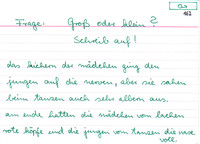 Cu
162
Frage: Groß oder klein?
Schreib auf!
das kichern der mädchen ging den
jungen auf die nerven, aber sie sahen
beim tanzen auch sehr albern aus.
am ende hatten die mädchen vom lachen
rote köpfe und die jungen vom tanzen die nase
voll.